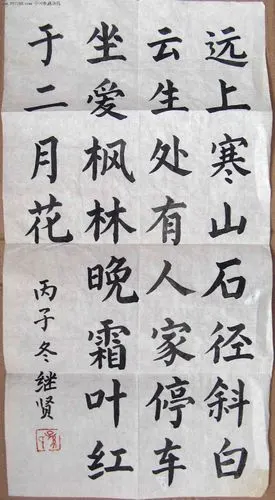 远上寒山石径斜白
云生处有人家停车
坐爱枫林晚霜叶红
于二月花
丙子冬继贤